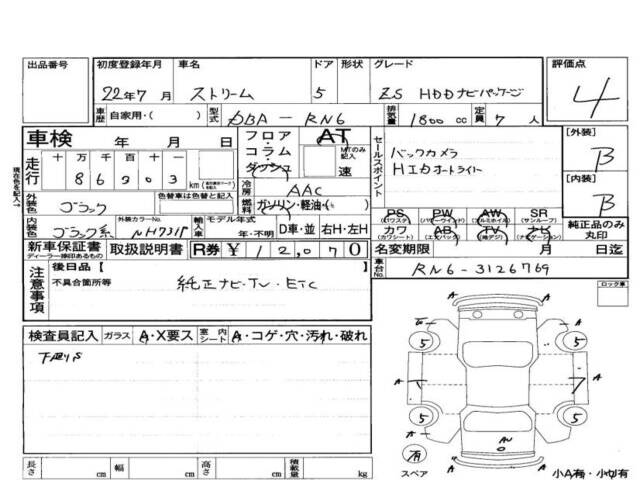 出品番号 初度登録年月 車名 ドア 形状 グレード 評価点
22年7月 ストリーム 5 ZS HDDナビパッケージ 4
車歴 自家用・( ) 型式 DBA-RN6 排気量 1800 cc 定員 7 人
車検 年 月 日 フロア・コラム・ダッシュ AT MTのみ記入 速 セールスポイント [外装] B
バックカメラ
HIDオートライト
走行 十 万 千 百 十 一 km
冷房 AAC [内装] B
外装色 ブラック 色替車は色替と記入 燃料 ガソリン・軽油・( )
PS (パワステ) PW (パワーウインド) AW (アルミホイル) SR (サンルーフ)
内装色 ブラック系 外装カラーNo. NH731P 輸入車 モデル年式 年・不明 D車・並 右H・左H
カワ (カワシート) AB (エアバック) TV (地デジ) ナビ (ナビゲーション) 純正品のみ丸印
現在色を記入↑
新車保証書 ディーラー捺印あるもの 取扱説明書 R券 ¥12,070 名変期限 月 日迄
注意事項 後日品[ ] 車台No. RN6-3126769
不具合箇所等 純正ナビ・TV・ETC
ロック車
検査員記入 ガラス A・X要ス 室内シート A・コゲ・穴・汚れ・破れ
下廻りS
A
A
5 5
A A
5 5
AU
有
スペア
A
小A有・小U有
長さ cm 幅 cm 高さ cm 積載量 kg